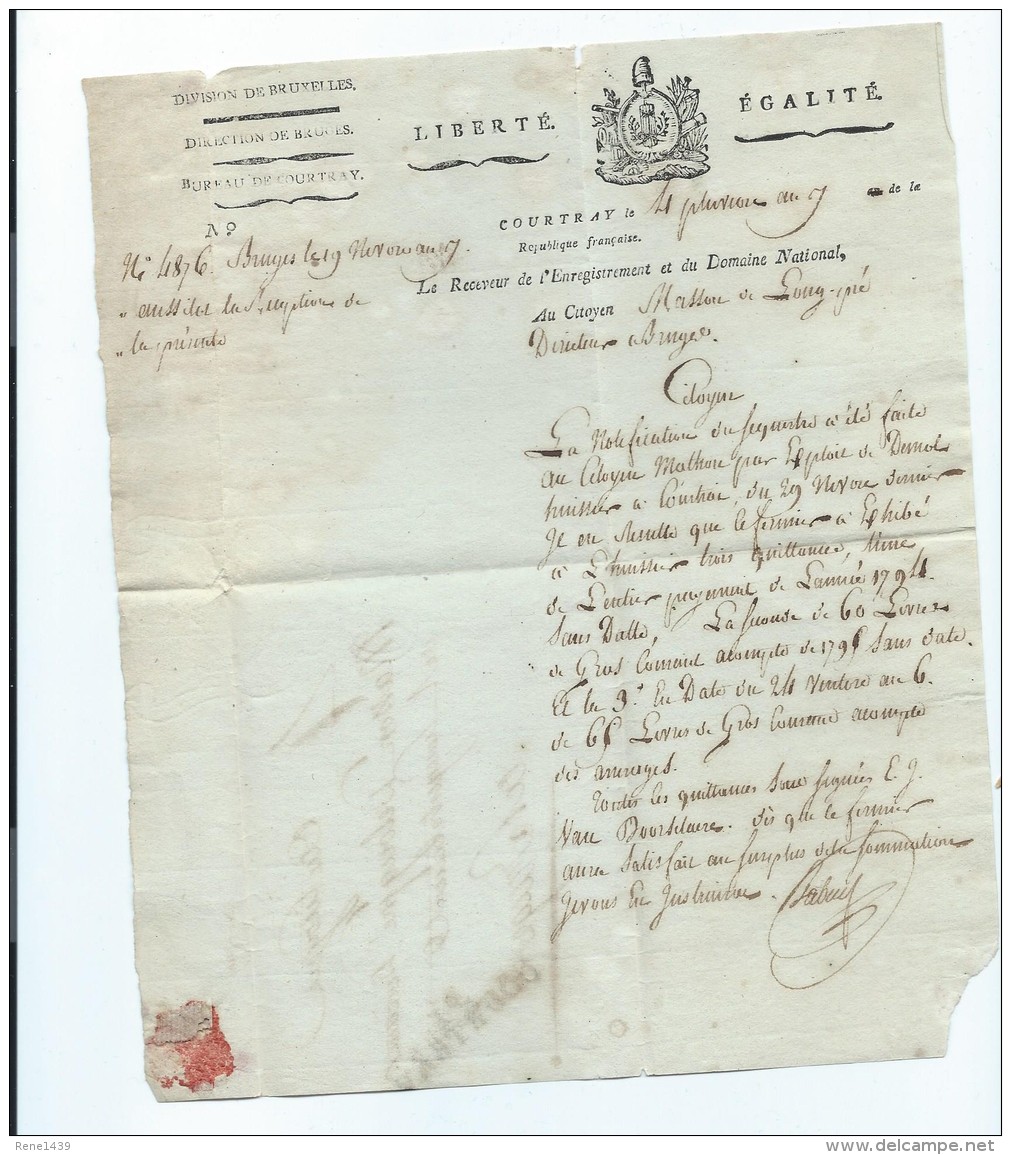 DIVISION DE BRUXELLES.
DIRECTION DE BRUGES.
BUREAU DE COURTRAY.
LIBERTÉ.
ÉGALITÉ.
Nº
COURTRAY le 4 pluviose an 7 de la
République française.
Le Receveur de l'Enregistrement et du Domaine National,
Au Citoyen Masson de Long-pré
Directeur a Bruges.
Nº 4876. Bruges le 19 Nivose an 7.
" aussitot la Reception de
" la présente
Citoyen
La Notification du sequestre a été faite
au Citoyen Mathon par Exploit de
huissier a Courtrai, du 29 Nivose dernier
Je en Resulte que le fermier a Exhibé
a L'huissier trois quittances, L'une
de L'entier payement de L'année 1794.
Sans Datte, La seconde de 60 Livres
de Gros Courant acompte de 1795 Sans date.
Et la 3e En Date du 24 Ventose an 6.
de 66 Livres de Gros Courant acompte
des arrerages.
Toutes les quittances sont signées E. J.
Van . dès que le fermier
aura Satisfait au surplus de la sommation
Je vous En Instruirai.
COURTRAY
Rene1439
delcampe.net